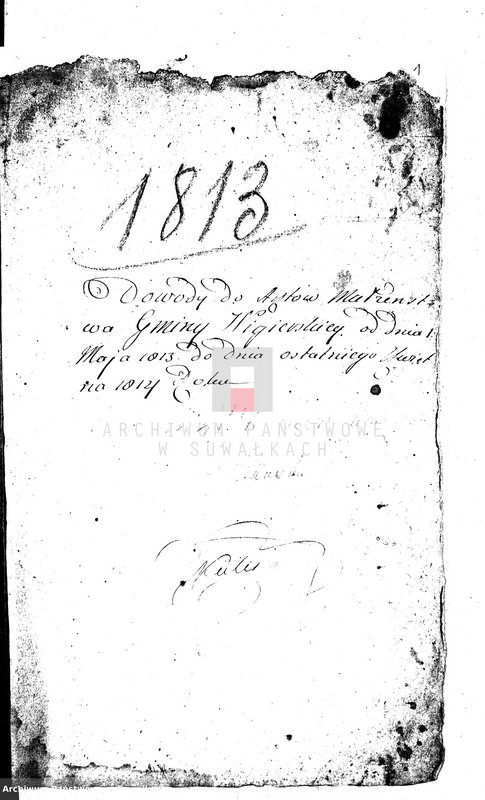 1
1813
Dowody do Aktow Małżeńst-
wa Gminy Wigierskiey od dnia 1
Maja 1813 do dnia ostatniego Kwiet
nia 1814 Roku
ARCHIWUM PAŃSTWOWE
W SUWAŁKACH